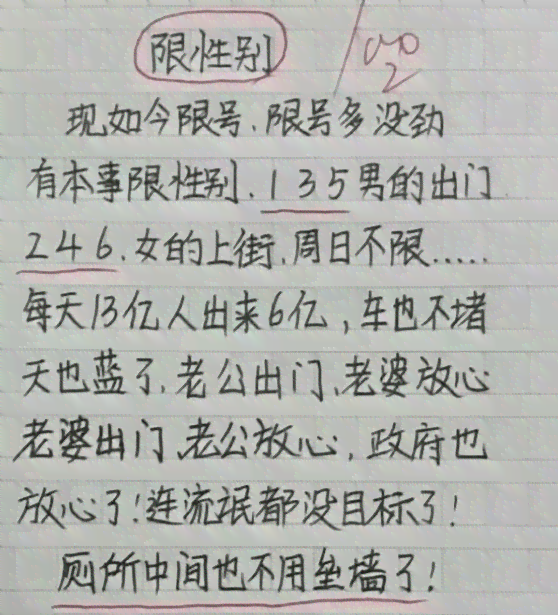 限性别
现如今限号、限号多没劲
有本事限性别、135男的出门
246、女的上街、周日不限……
每天13亿人出来6亿，车也不堵
天也蓝了、老公出门、老婆放心
老婆出门、老公放心，政府也
放心了！连流氓都没目标了！
厕所中间也不用垒墙了！